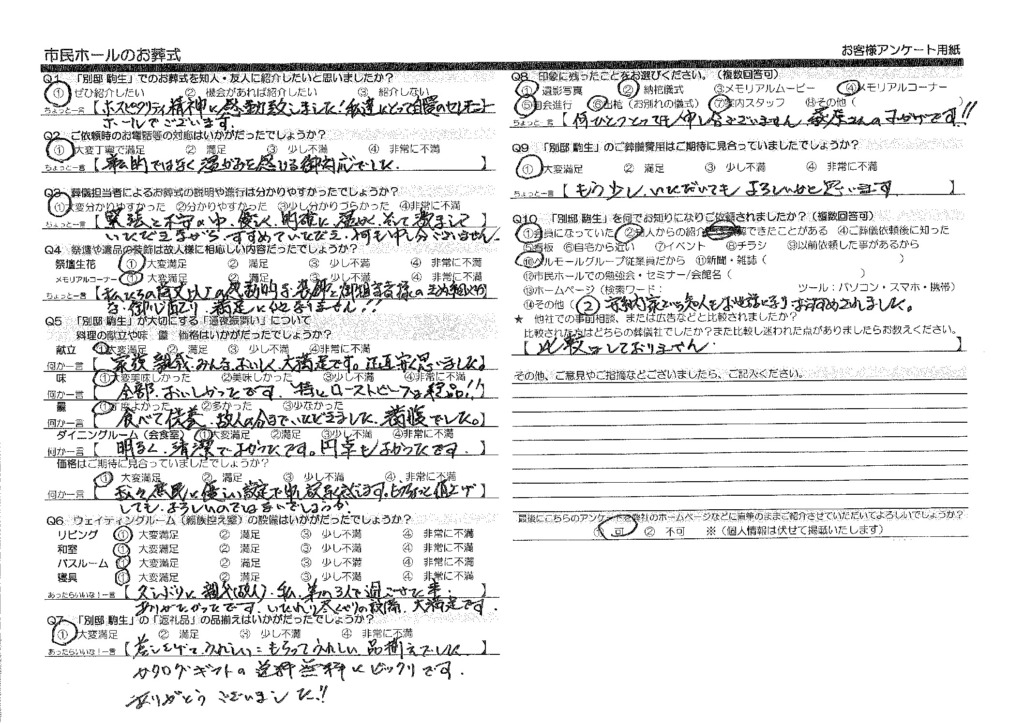 市民ホールのお葬式
お客様アンケート用紙
Q1 「別邸 駒生」でのお葬式を知人・友人に紹介したいと思いましたか？
①ぜひ紹介したい ②機会があれば紹介したい ③紹介しない
ちょっと一言【ホスピタリティ精神に感動致しました！私達にとって自慢のセレモニー
ホールでございます。
Q2 ご依頼時のお電話等の対応はいかがだったでしょうか？
①大変丁寧で満足 ②満足 ③少し不満 ④非常に不満
ちょっと一言【事務的ではなく温かさを感じる御対応でした。】
Q3 葬儀担当者によるお葬式の説明や進行は分かりやすかったでしょうか？
①大変分かりやすかった ②分かりやすかった ③少し分かりづらかった ④非常に不満
ちょっと一言【緊張と不安の中、優しく、明確に、温かく、そして励まして
いただき乍らすすめていただき、何も申し分ございません。
Q4 祭壇や遺品の装飾は故人様に相応しい内容だったでしょうか？
祭壇生花 ①大変満足 ②満足 ③少し不満 ④非常に不満
メモリアルコーナー ①大変満足 ②満足 ③少し不満 ④非常に不満
ちょっと一言【私たちの
Q5 「別邸 駒生」が大切にする「通夜振舞い」について
料理の献立や味 量 価格はいかがだったでしょうか？
献立 ①大変満足 ②満足 ③少し不満 ④非常に不満
何か一言【家族、親戚、みんなおいしく、大満足です。
味 ①大変美味しかった ②美味しかった ③少し不満 ④非常に不満
何か一言【全部、おいしかったです。特にローストビーフは絶品!!】
量 ①丁度よかった ②多かった ③少なかった
何か一言【食べて供養、故人の分までいただきました。満腹でした。】
ダイニングルーム（会食室） ①大変満足 ②満足 ③少し不満 ④非常に不満
何か一言【明るく、清潔でよかったです。円卓もよかったです。】
価格はご期待に見合っていましたでしょうか？
①大変満足 ②満足 ③少し不満 ④非常に不満
何か一言【我々庶民に優しい設定で申し訳なく思います。もうちょっと値上げ
しても、よろしいのではないでしょうか。
Q6 ウェイティングルーム（親族控え室）の設備はいかがだったでしょうか？
リビング ①大変満足 ②満足 ③少し不満 ④非常に不満
和室 ①大変満足 ②満足 ③少し不満 ④非常に不満
バスルーム ①大変満足 ②満足 ③少し不満 ④非常に不満
寝具 ①大変満足 ②満足 ③少し不満 ④非常に不満
あったらいいな！一言【久しぶりに親父(故人)、私、弟の3人で過ごせた事、
ありがたかったです。いたれり尽くせりの設備、大満足です。
Q7 「別邸 駒生」の「返礼品」の品揃えはいかがだったでしょうか？
①大変満足 ②満足 ③少し不満 ④非常に不満
あったらいいな！一言【差し上げてうれしい=もらってうれしい品揃えでした。】
カタログギフトの送料無料にビックリです。
ありがとうございました!!
Q8 印象に残ったことをお選びください。（複数回答可）
①遺影写真 ②納棺儀式 ③メモリアルムービー ④メモリアルコーナー
⑤司会進行 ⑥出棺（お別れの儀式） ⑦案内スタッフ ⑧その他（ ）
ちょっと一言【何ひとつとっても申し分ございません。
Q9 「別邸 駒生」のご葬儀費用はご期待に見合っていましたでしょうか？
①大変満足 ②満足 ③少し不満 ④非常に不満
ちょっと一言【もう少し、いただいてもよろしいかと思います】
Q10 「別邸 駒生」を何でお知りになりご依頼されましたか？（複数回答可）
①会員になっていた ②知人からの紹介 できたことがある ④ご葬儀依頼後に知った
⑤看板 ⑥自宅から近い ⑦イベント ⑧チラシ ⑨以前依頼した事があるから
⑩ベルモールグループ従業員だから ⑪新聞・雑誌（ ）
⑫市民ホールでの勉強会・セミナー/会館名（ ）
⑬ホームページ（検索ワード： ツール：パソコン・スマホ・携帯）
⑭その他（ ②
★ 他社での事前相談、または広告などと比較されましたか？
比較された方はどちらの葬儀社でしたか？また比較し迷われた点がありましたらお教えください。
【比較はしておりません】
その他、ご意見やご指摘などございましたら、ご記入ください。
最後にこちらのアンケートを弊社のホームページなどに直筆のままご紹介させていただいてよろしいでしょうか？
①可 ②不可 ※（個人情報は伏せて掲載いたします）